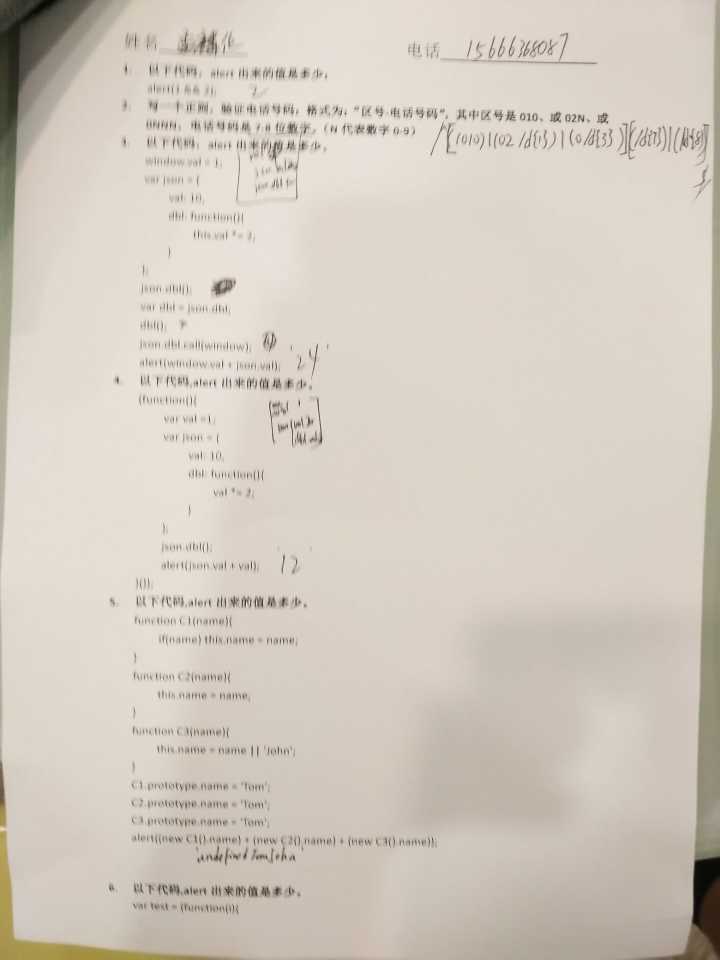 姓名
电话 15666368087
1. 以下代码，alert 出来的值是多少。
alert(1 && 2); 2
2. 写一个正则，验证电话号码，格式为：“区号-电话号码”，其中区号是 010、或 02N、或
0NNN，电话号码是 7-8 位数字。（N 代表数字 0-9）
3. 以下代码，alert 出来的值是多少。
window.val = 1;
var json = {
val: 10,
dbl: function(){
this.val *= 2;
}
};
json.dbl();
var dbl = json.dbl;
dbl();
json.dbl.call(window);
alert(window.val + json.val); '24'
4. 以下代码,alert 出来的值是多少。
(function(){
var val =1;
var json = {
val: 10,
dbl: function(){
val *= 2;
}
};
json.dbl();
alert(json.val + val); '12'
}());
5. 以下代码,alert 出来的值是多少。
function C1(name){
if(name) this.name = name;
}
function C2(name){
this.name = name;
}
function C3(name){
this.name = name || 'John';
}
C1.prototype.name = 'Tom';
C2.prototype.name = 'Tom';
C3.prototype.name = 'Tom';
alert((new C1().name) + (new C2().name) + (new C3().name));
'undefined Tom John'
6. 以下代码,alert 出来的值是多少。
var test = (function(i){